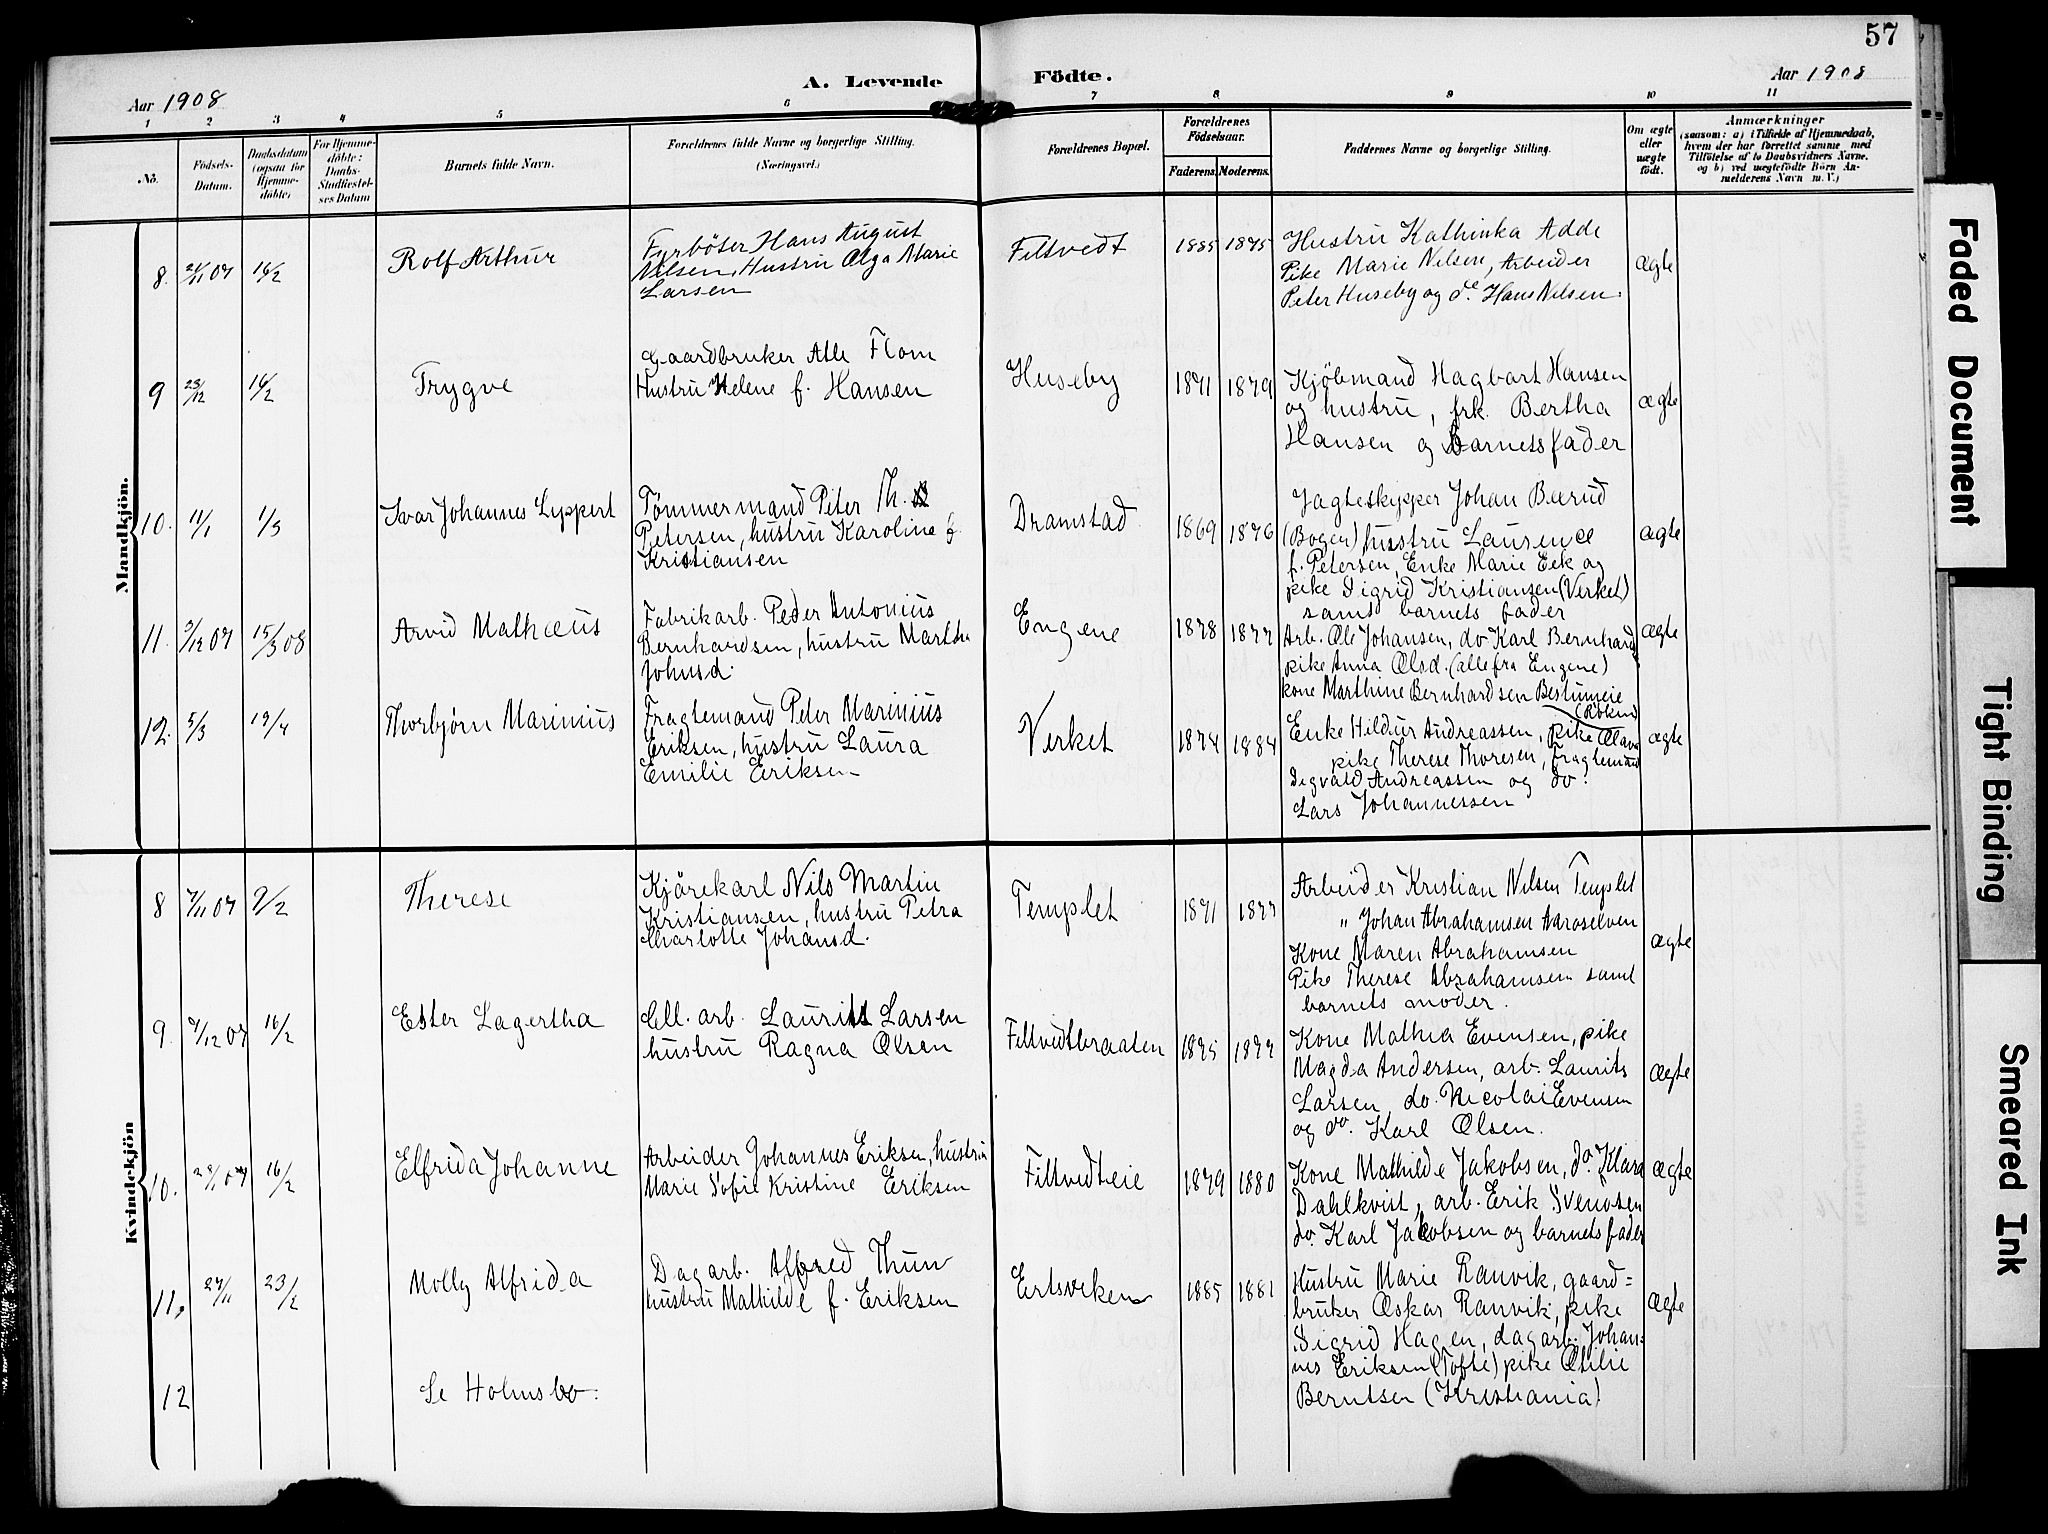 57
A. Levende Födte.
Aar 1908
Aar 1908
1 2 3 4 5 6 7 8 9 10 11
No.
Födsels-Datum.
Daabsdatum (ogsaa for Hjemme-döbte)
For Hjemme-döbte: Daabs-Stadfæstel-ses Datum
Barnets fulde Navn.
Forældrenes fulde Navne og borgerlige Stilling.
(Næringsvei.)
Forældrenes Bopæl.
Forældrenes Födselsaar.
Faderens. Moderens.
Faddernes Navne og borgerlige Stilling.
Om ægte eller uægte födt.
Anmærkninger
(saasom: a) i Tilfælde af Hjemmedaab,
hvem der har forrettet samme, med
Tilföielse af to Daabsvidners Navne,
og b) ved uægtefödte Börn An-
melderens Navn m. V.)
Mandkjön.
8. 2/11 07 16/2
Rolf Arthur
Fyrböter Hans August
Nilsen, Hustru Olga Marie
Larsen
Filtvedt
1885 1875
Hustru Kathinka Adde
Pike Marie Nilsen, Arbeider
Peter Huseby og do Hans Nilsen.
ægte
9 23/12 16/2
Trygve
Gaardbruker Atle Flom
Hustru Helene f. Hansen
Huseby
1871 1879
Kjöbmand Hagbart Hansen
og hustru, frk. Bertha
Hansen og barnets fader
ægte
10. 11/1 1/3
Ivar Johannes Lyppert
Tömmermand Peter Th.
Petersen, hustru Karoline f.
Kristiansen
Dramstad
1869 1876
Jagteskipper Johan Bærud
(Bogen) hustru Laurence
f. Petersen, Enke Marie Eek og
pike Sigrid Kristiansen (Virket)
samt barnets fader
ægte
11. 3/12 07 15/3 08
Arvid Mathæus
Fabrikarb. Peder Antonius
Bernhardsen, hustru Marthe
Johnsd.
Engene
1878 1877
Arb. Ole Johansen, do Karl Bernhards
pike Anna Olsd. (alle fra Engene)
kone Marthine Bernhardsen Bestumeie
(Röken)
ægte
12. 5/3 19/4
Thorbjørn Marinius
Fragtemand Peter Marinius
Eriksen, hustru Laura
Emilie Eriksen
Virket
1874 1884
Enke Hildur Andreassen, pike Olava
pike Therese Thoresen, Fragtemand
Sigvald Andreassen og do.
Lars Johannessen
ægte
Kvindekjön
8 7/11 07 9/2
Therese
Kjörekarl Nils Martin
Kristiansen, hustru Petra
Charlotte Johansd.
Templet
1871 1877
Arbeider Kristian Nilsen Templet
" Johan Abrahamsen Aaroselven
Kone Maren Abrahamsen
Pike Therese Abrahamsen samt
barnets moder.
ægte
9. 9/12 07 16/2
Ester Lagertha
Cell. arb. Laurits Larsen
hustru Ragna Olsen
Filtvedtbraaten
1875 1877
Kone Mathea Evensen, pike
Magda Andersen, arb. Laurits
Larsen, do. Nicolai Evensen
og do. Karl Olsen.
ægte
10. 16/2
Elfrida Johanne
Arbeider Johannes Eriksen, hustru
Marie Sofie Kristine Eriksen
Filtvedteie
1879 1880
Kone Mathilde Jakobsen, do. Klara
Dahlkvist, arb. Erik Svendsen
do. Karl Jakobsen og barnets fader
ægte
11. 27/11 23/2
Molly Alfrida
Dagarb. Alfred Thun
hustru Mathilde f. Eriksen
Ertsviken
1885 1881
Hustru Marie Ranvik, gaard=
bruker Oskar Ranvik, pike
Sigrid Hagen, dagarb. Johan=
nes Eriksen (Tofte) pike Otilie
Berntsen (Kristiania)
ægte
12
Se Holmsbo.
Faded Document
Tight Binding
Smeared Ink